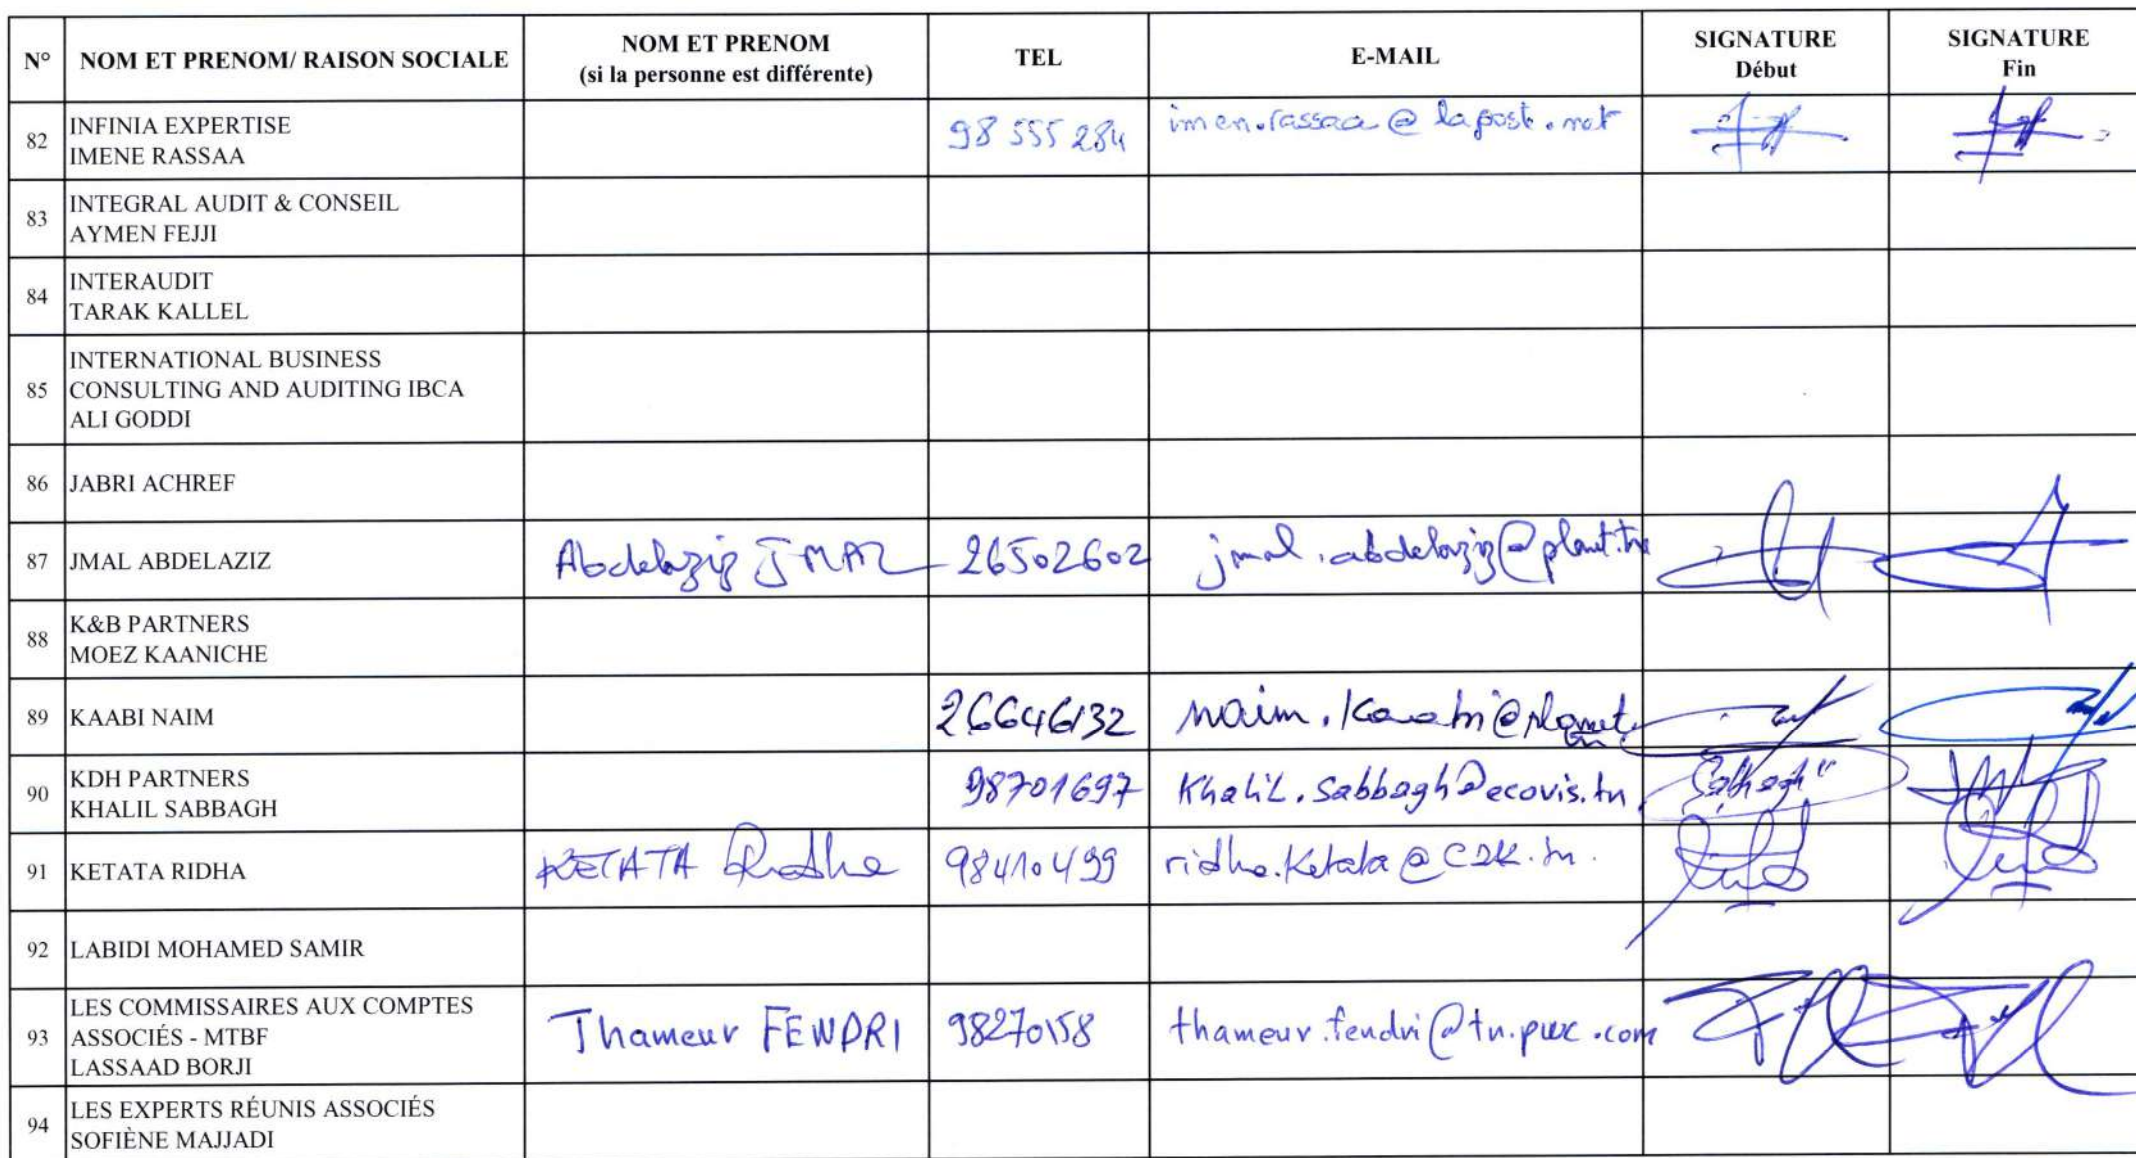 N° NOM ET PRENOM/ RAISON SOCIALE NOM ET PRENOM (si la personne est différente) TEL E-MAIL SIGNATURE Début SIGNATURE Fin
82 INFINIA EXPERTISE 98 555 284 imen.rassaa@laposte.net
IMENE RASSAA
83 INTEGRAL AUDIT & CONSEIL
AYMEN FEJJI
84 INTERAUDIT
TARAK KALLEL
85 INTERNATIONAL BUSINESS
CONSULTING AND AUDITING IBCA
ALI GODDI
86 JABRI ACHREF
87 JMAL ABDELAZIZ Abdelaziz JMAL 26502602 jmal.abdelaziz@planet.tn
88 K&B PARTNERS
MOEZ KAANICHE
89 KAABI NAIM 26646132 naim.kaabi@planet.tn
90 KDH PARTNERS 98701697 Khalil.Sabbagh@ecovis.tn Sabbagh
KHALIL SABBAGH
91 KETATA RIDHA KETATA Ridha 98410499 ridha.Ketata@C2K.tn.
92 LABIDI MOHAMED SAMIR
93 LES COMMISSAIRES AUX COMPTES Thameur FENDRI 98270158 thameur.fendri@tn.pwc.com
ASSOCIÉS - MTBF
LASSAAD BORJI
94 LES EXPERTS RÉUNIS ASSOCIÉS
SOFIÈNE MAJJADI